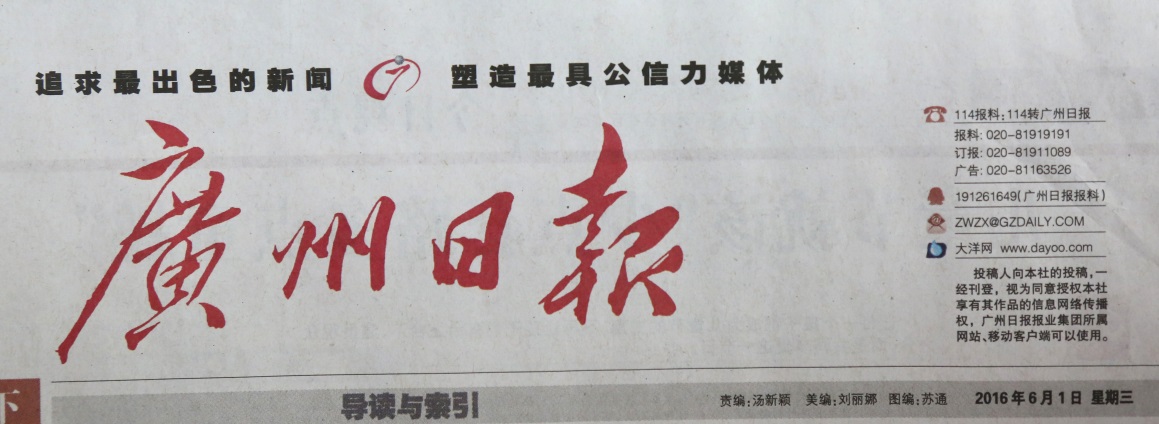 追求最出色的新闻 塑造最具公信力媒体
廣州日報
114报料:114转广州日报
报料: 020-81919191
订报: 020-81911089
广告: 020-81163526
191261649(广州日报报料)
ZWZX@GZDAILY.COM
大洋网 www.dayoo.com
投稿人向本社的投稿,一
经刊登,视为同意授权本社
享有其作品的信息网络传播
权,广州日报报业集团所属
网站、移动客户端可以使用。
导读与索引
责编:汤新颖 美编:刘丽娜 图编:苏通 2016年6月1日 星期三